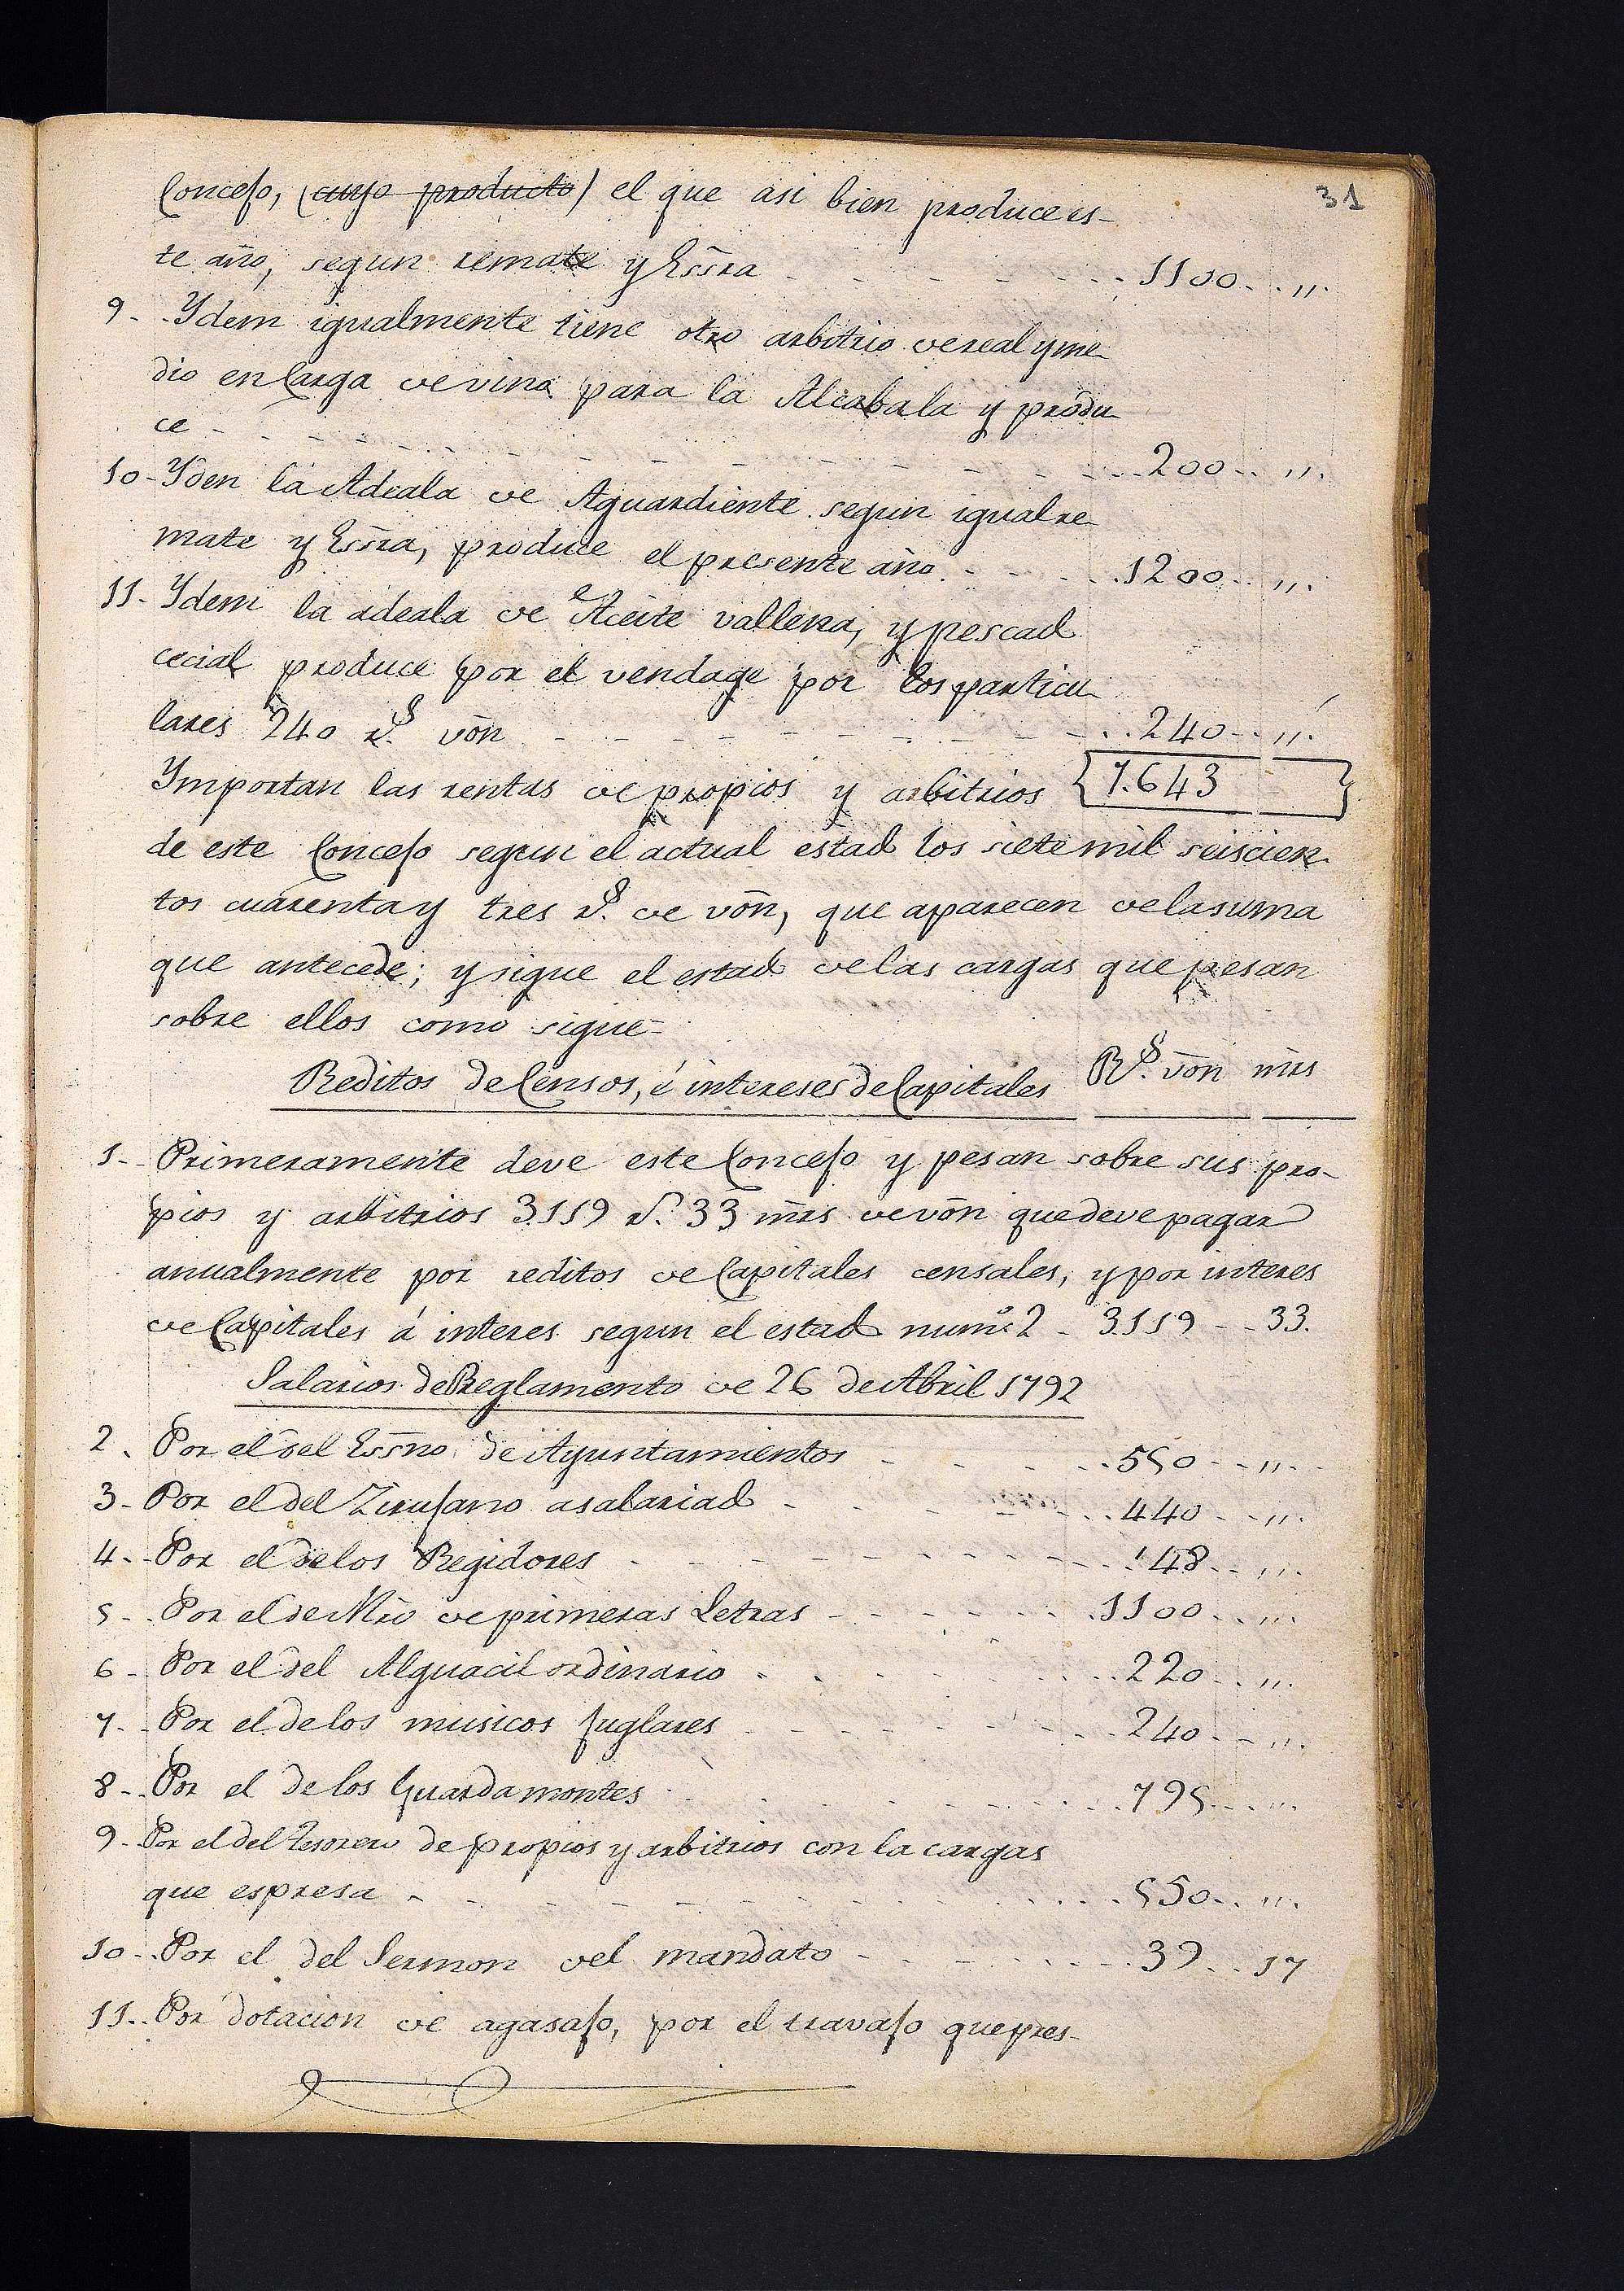 31
Concejo, (cuyo producto) el que asi bien produce es-
te año, segun remate y Essra - - - 1100 - - "
9 - Ydem igualmente tiene otro arbitrio de real y me-
dio en Carga de vino para la Alcabala y produ-
ce - - - 200 - - "
10 - Yden la Adeala de Aguardiente segun igual re-
mate y Essra, produce el presente año - - - 1200 - - "
11 - Ydem la adeala de Aceite vallena, y pescado
cecial produce por el vendage por los particu-
lares 240 rs. von - - - 240 - - "
Ymportan las rentas de propios y arbitrios {7.643}
de este Concejo segun el actual estado los siete mil seiscien-
tos cuarenta y tres rs. de von, que aparecen de la suma
que antecede; y sigue el estado de las cargas que pesan
sobre ellos como sigue=
Reditos de Censos, é intereses de Capitales Rs. von mrs
1 - Primeramente deve este Concejo y pesan sobre sus pro-
pios y arbitrios 3119 rs. 33 mrs de von que deve pagar
anualmente por reditos de Capitales censales, y por interes
de Capitales á interes segun el estado numº 2 - 3119 - - 33.
Salarios de Reglamento de 26 de Abril 1792
2 - Por el del Essno de Ayuntamientos - - - 550 - - "
3 - Por el del Zirujano asalariado - - - 440 - - "
4 - Por el de los Regidores - - - 148 - - "
5 - Por el de Mro de primeras Letras - - - 1100 - - "
6 - Por el del Alguacil ordinario - - - 220 - - "
7 - Por el de los musicos Juglares - - - 240 - - "
8 - Por el de los Guardamontes - - - 795 - - "
9 - Por el del Tesorero de propios y arbitrios con la cargas
que espresa - - - 550 - - "
10 - Por el del Sermon del mandato - - - 39 - - 17
11 - Por dotacion de agasajo, por el travajo que pres-